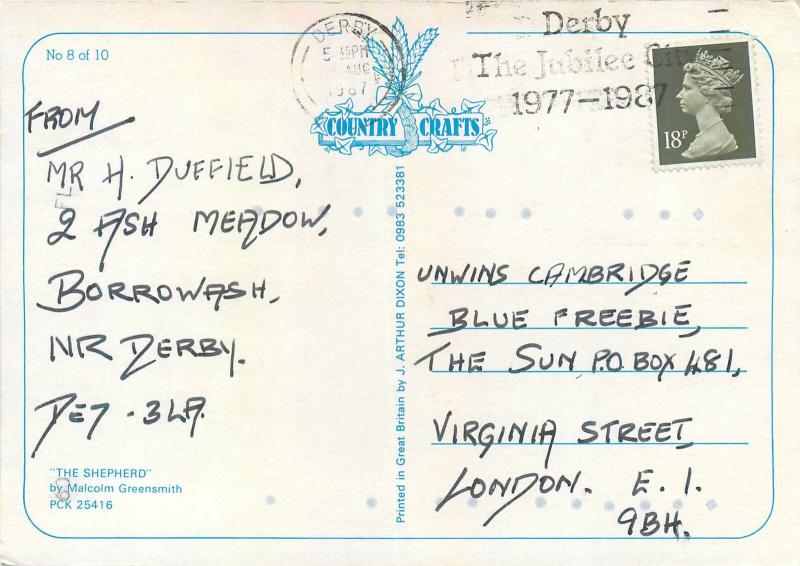 No 8 of 10
DERBY
5.45PM
AUG
1987
Derby
The Jubilee City
1977-1987
18P
COUNTRY CRAFTS
FROM
MR H. DUFFIELD,
2 ASH MEADOW,
BORROWASH,
NR DERBY.
DE7 - 3LA.
"THE SHEPHERD"
by Malcolm Greensmith
PCK 25416
Printed in Great Britain by J. ARTHUR DIXON Tel: 0983 523381
UNWINS CAMBRIDGE
BLUE FREEBIE,
THE SUN P.O. BOX 481,
VIRGINIA STREET
LONDON. E. 1.
9BH.